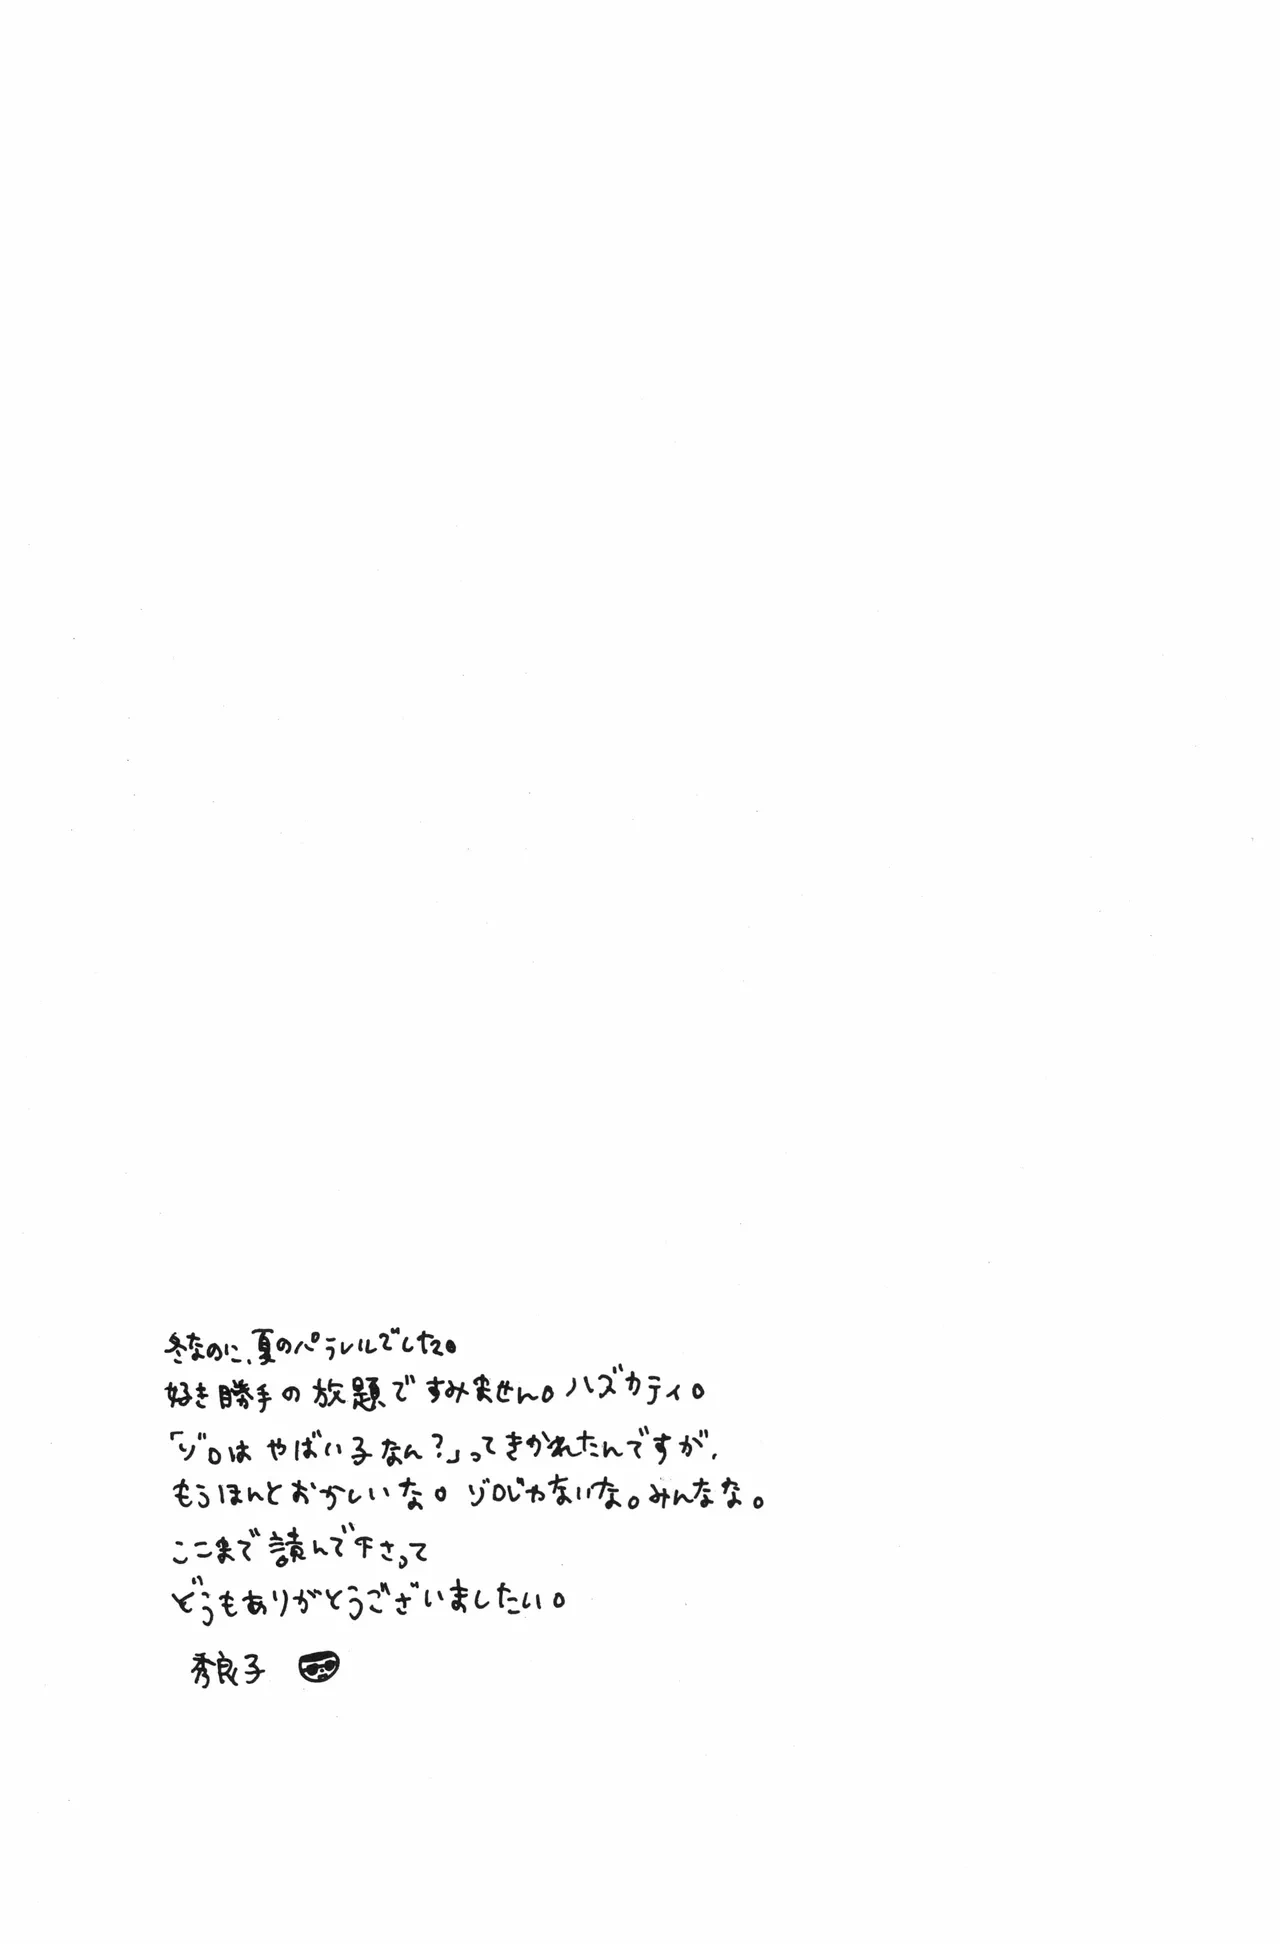 冬なのに、夏のパラレルでした。
好き勝手の放題ですみません。ハズカティ。
「ゾロはやばい子なん?」ってきかれたんですが、
もうほんとおかしいな。ゾロじゃないな。みんなな。
ここまで読んで下さって
どうもありがとうございましたい。
秀良子